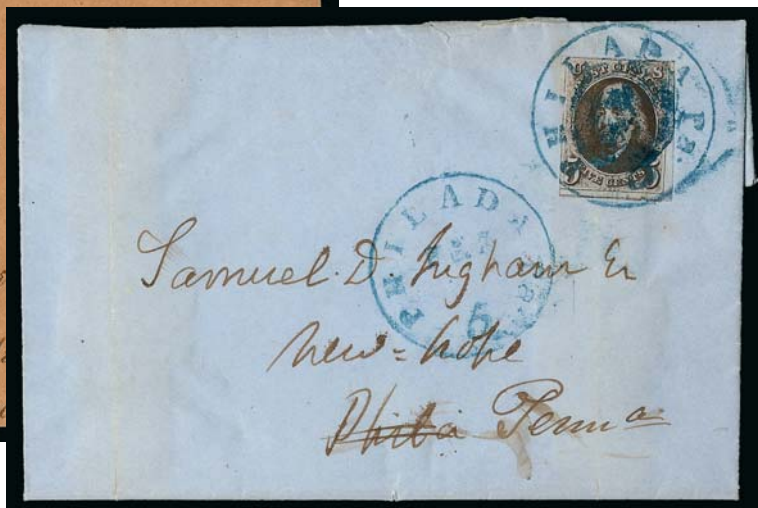 PHILADA Pa.
POST OFFICE
5 FIVE CENTS 5
PHILADA
5
Samuel. D. Ingham Er
New=hope
Phila Penna